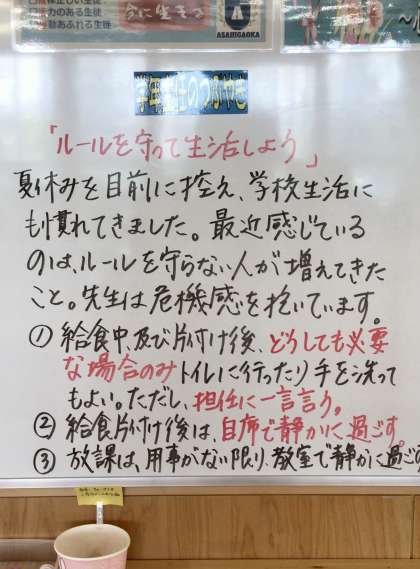 今に生きる
力のある生徒
動あふれる生徒
ASAHIGAOKA
学年主任のつぶやき
「ルールを守って生活しよう」
夏休みを目前に控え、学校生活に
も慣れてきました。最近感じている
のは、ルールを守らない人が増えてきた
こと。先生は危機感を抱いています。
① 給食中、及び片付け後、どうしても必要
な場合のみトイレに行ったり手を洗って
もよい。ただし、担任に一言言う。
② 給食片付け後は、自席で静かに過ごす。
③ 放課は、用事がない限り、教室で静かに過ごす